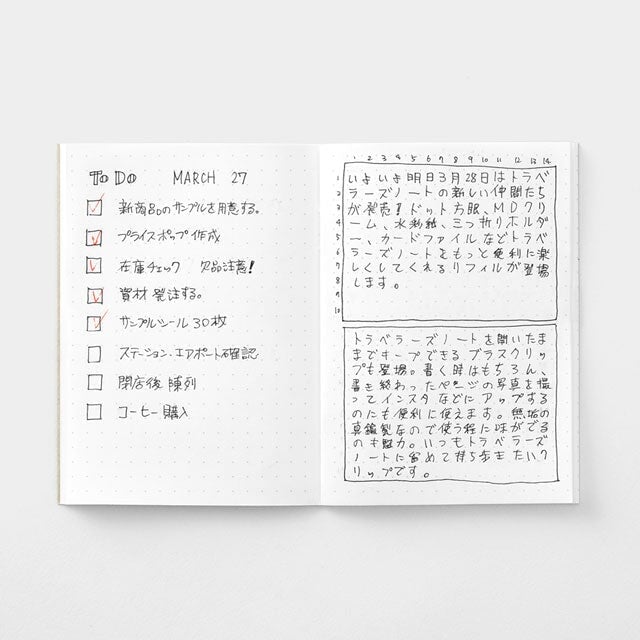 To Do MARCH 27
新商品のサンプルを用意する。
プライスポップ作成
在庫チェック 欠品注意!
資材発注する。
サンプルシール30枚
ステーション・エアポート確認
閉店後 陳列
コーヒー購入
1 2 3 4 5 6 7 8 9 10 11 12 13 14
1 いよいよ明日3月28日はトラベ
2 ラーズノートの新しい仲間たち
3 が発売!ドット方眼、MDクリ
4 ーム、水彩紙、三つ折りホルダ
5 ー、カードファイルなどトラベ
6 ラーズノートをもっと便利に楽
7 しくしてくれるリフィルが登場
8 します。
9
10
トラベラーズノートを開いたま
までキープできるブラスクリッ
プも登場。書く時はもちろん、
書き終わったページの写真を撮
ってインスタなどにアップする
のにも便利に使えます。無垢の
真鍮製なので使う程に味がでる
のも魅力。いつもトラベラーズ
ノートに留めて持ち歩きたいク
リップです。